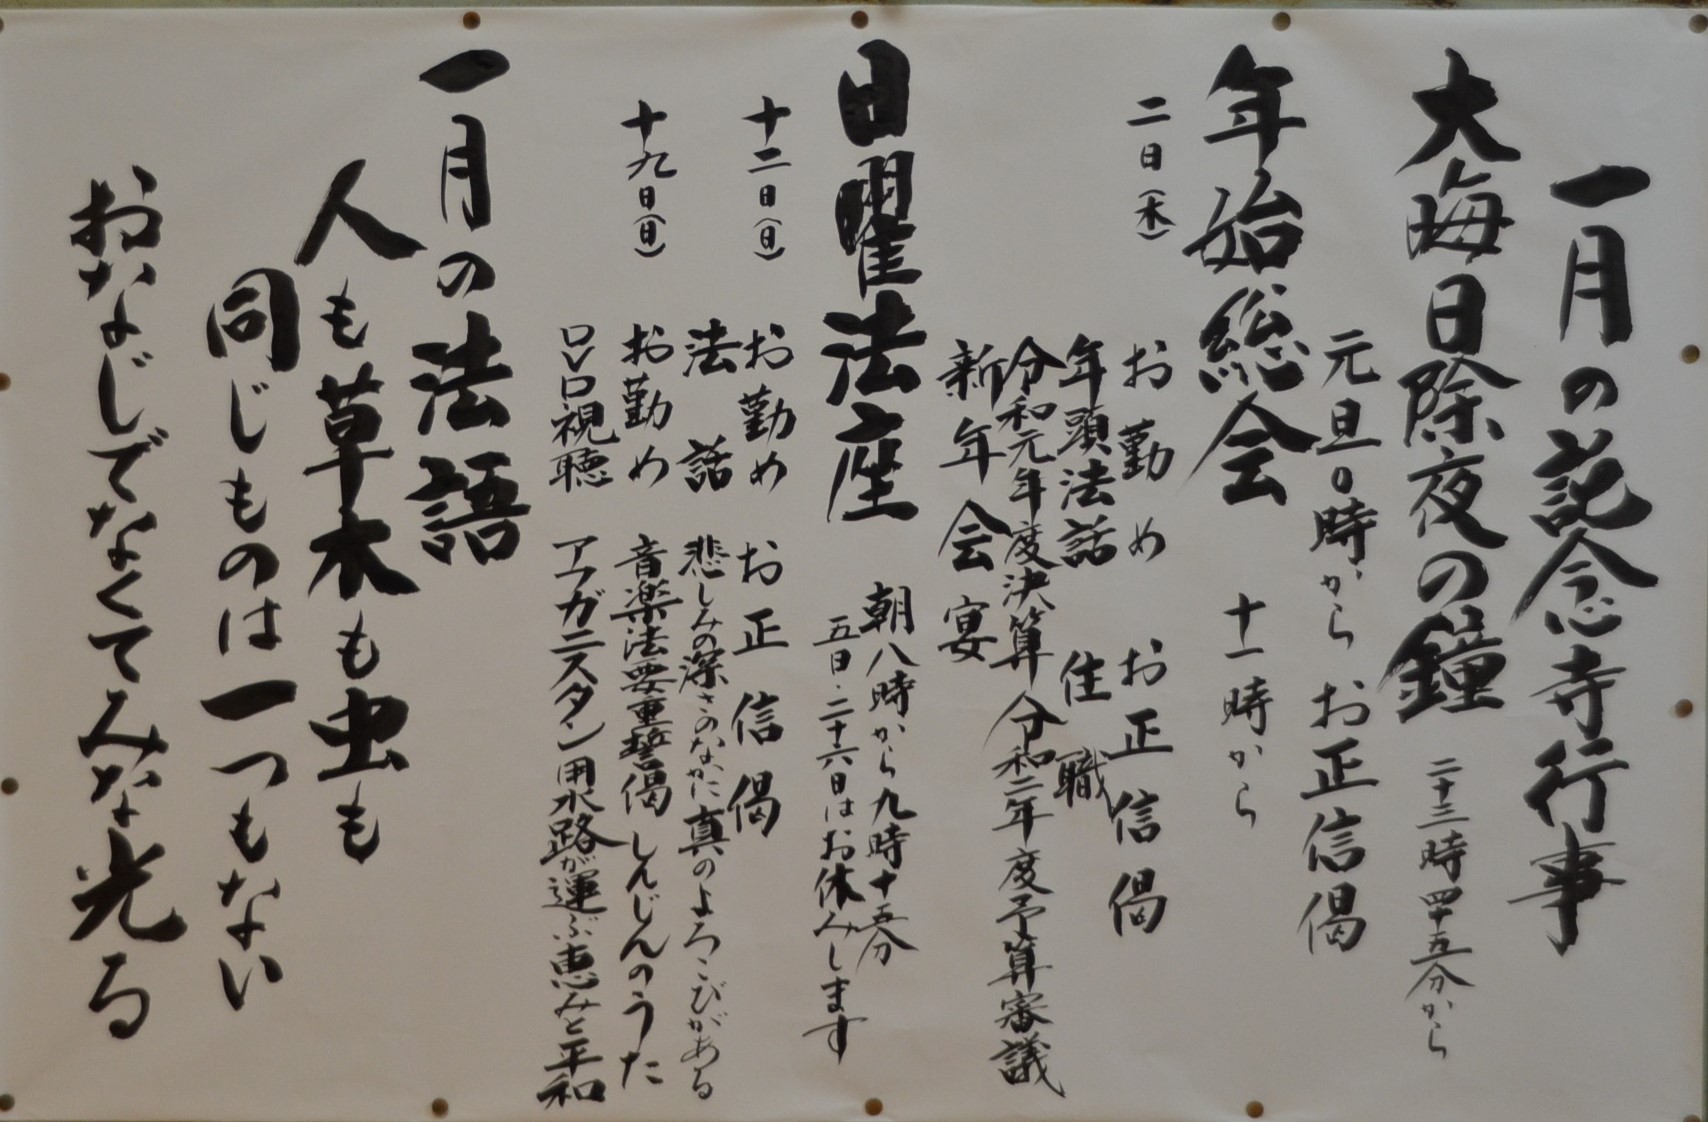 一月の記念寺行事
大晦日除夜の鐘 二十三時四十五分から
元旦0時から お正信偈
年始総会 十一時から
二日(木) お勤め お正信偈
年頭法話 住職
令和元年度決算 令和二年度予算審議
新年会宴
日曜法座 朝八時から九時十五分
五日・二十六日はお休みします
十二日(日) お勤め お正信偈
法話 悲しみの深さのなかに真のよろこびがある
十九日(日) お勤め 音楽法要重誓偈 しんじんのうた
ロソロ視聴 アフガニスタン用水路が運ぶ恵みと平和
一月の法語
人も草木も虫も
同じものは一つもない
おなじでなくてみな光る